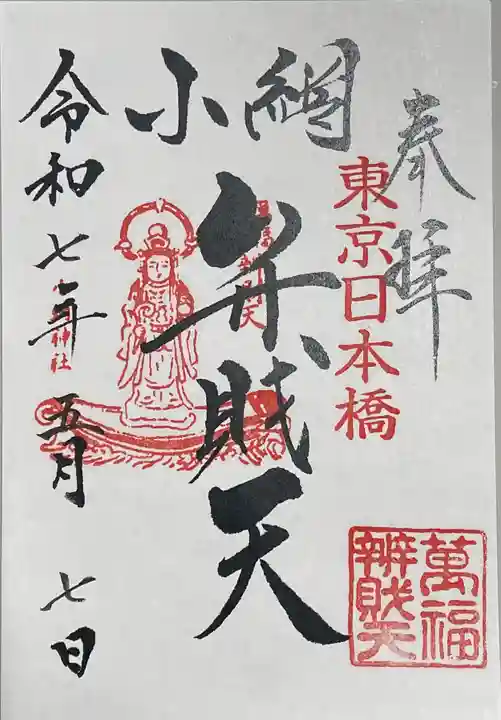 奉拝
東京日本橋
小網
弁財天
令和七年五月七日
神社
萬福
辨財天